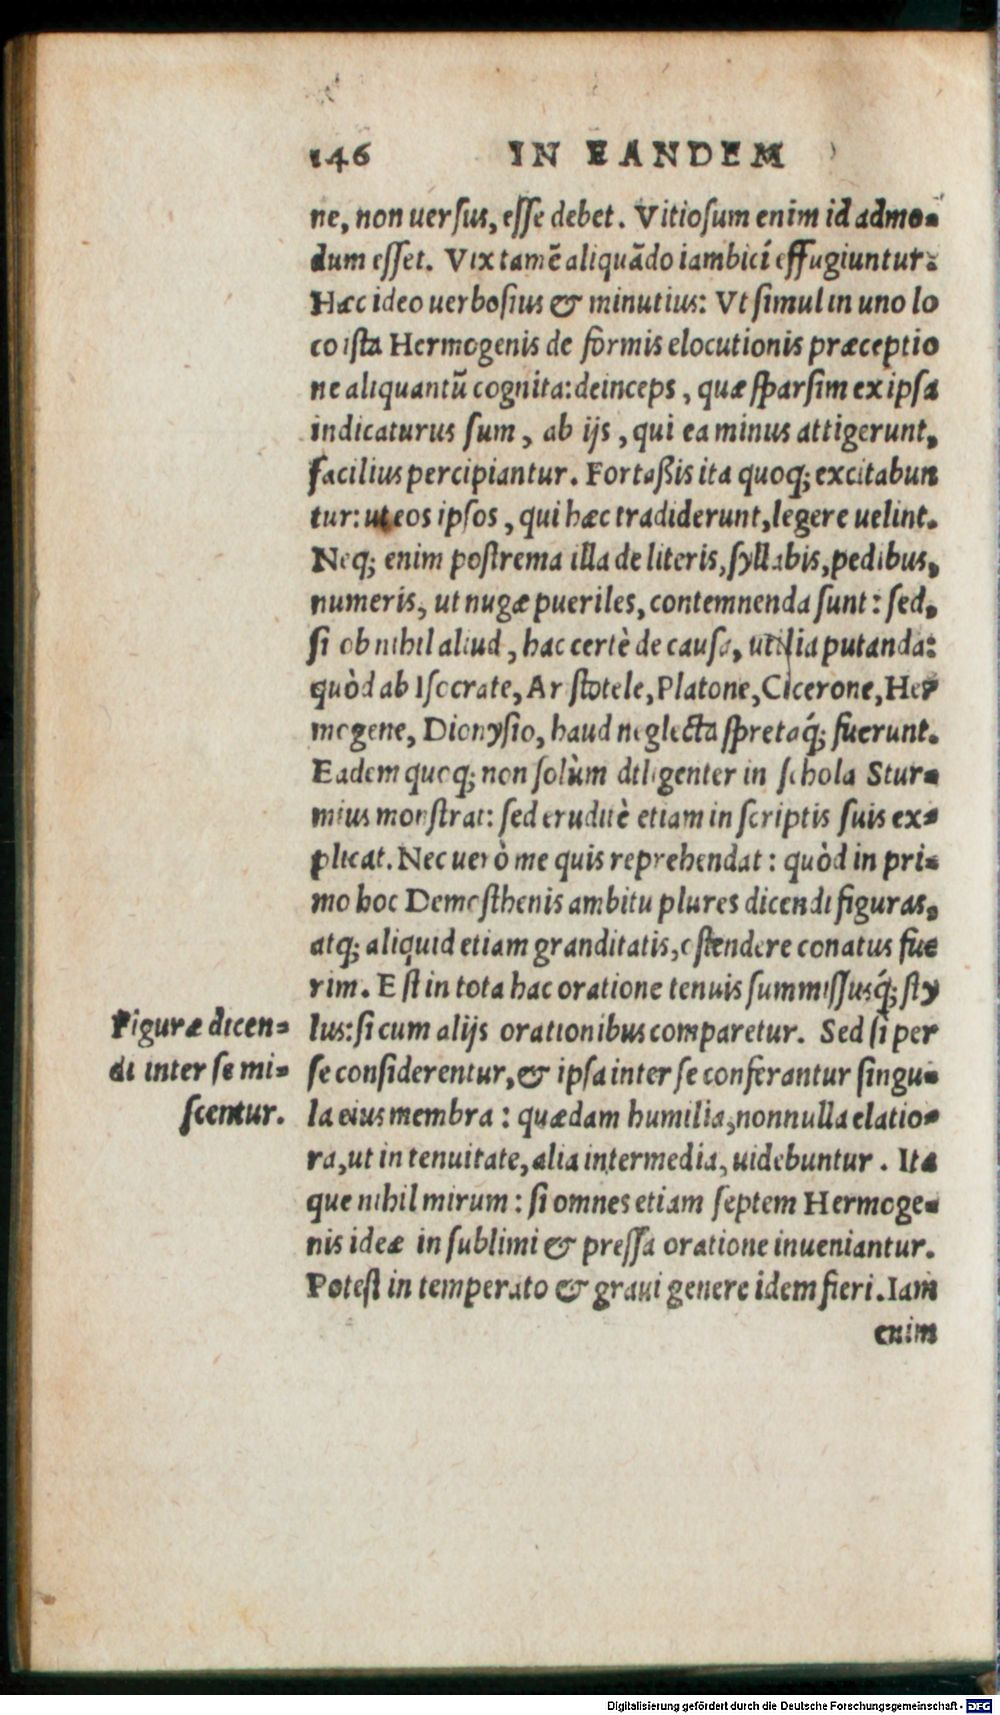 146 IN EANDEM
ne, non uersus, esse debet. Vitiosum enim id admo-
dum esset. Vix tamẽ aliquãdo iambici effugiuntur.
Hæc ideo uerbosius & minutius: Vt simul in uno lo
co ista Hermogenis de formis elocutionis præceptio
ne aliquantũ cognita: deinceps, quæ sparsim ex ipsa
indicaturus sum, ab ijs, qui ea minus attigerunt,
facilius percipiantur. Fortaßis ita quoq; excitabun
tur: ut eos ipsos, qui hæc tradiderunt, legere uelint.
Neq; enim postrema illa de literis, syllabis, pedibus,
numeris, ut nugæ pueriles, contemnenda sunt: sed,
si ob nihil aliud, hac certè de causa, utilia putanda:
quòd ab Isocrate, Aristotele, Platone, Cicerone, Her
mogene, Dionysio, haud neglecta spretaq́; fuerunt.
Eadem quoq; non solùm diligenter in schola Stur-
mius monstrat: sed eruditè etiam in scriptis suis ex-
plicat. Nec uerò me quis reprehendat: quòd in pri-
mo hoc Demosthenis ambitu plures dicendi figuras,
atq; aliquid etiam granditatis, ostendere conatus fue
rim. Est in tota hac oratione tenuis summissusq́; sty
lus: si cum alijs orationibus comparetur. Sed si per
se considerentur, & ipsa inter se conferantur singu-
la eius membra: quædam humilia, nonnulla elatio-
ra, ut in tenuitate, alia intermedia, uidebuntur. Ita
que nihil mirum: si omnes etiam septem Hermoge-
nis ideæ in sublimi & pressa oratione inueniantur.
Potest in temperato & graui genere idem fieri. Iam
enim
Figuræ dicen-
di inter se mi-
scentur.
Digitalisierung gefördert durch die Deutsche Forschungsgemeinschaft - DFG